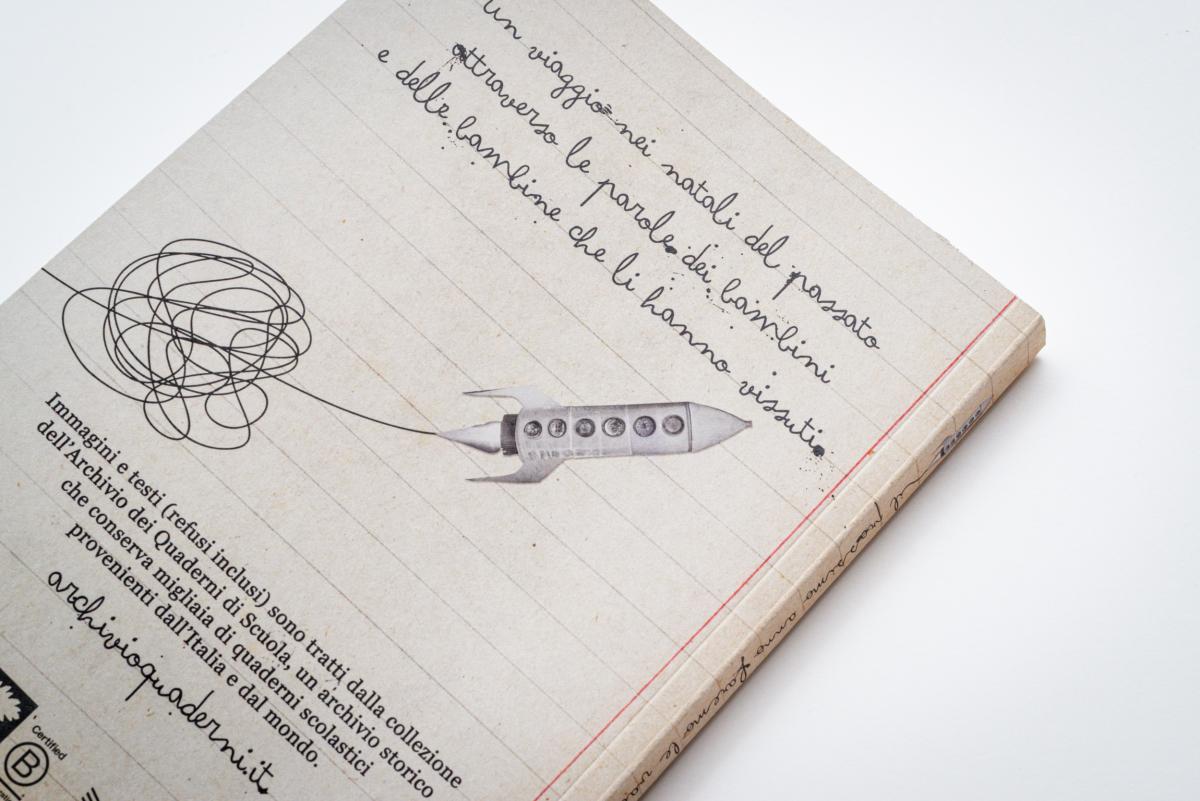 un viaggio nei natali del passato
attraverso le parole dei bambini
e delle bambine che li hanno vissuti.
Immagini e testi (refusi inclusi) sono tratti dalla collezione
dell'Archivio dei Quaderni di Scuola, un archivio storico
che conserva migliaia di quaderni scolastici
provenienti dall'Italia e dal mondo.
archivioquaderni.it
Certified
B
Il prossimo anno faremo le